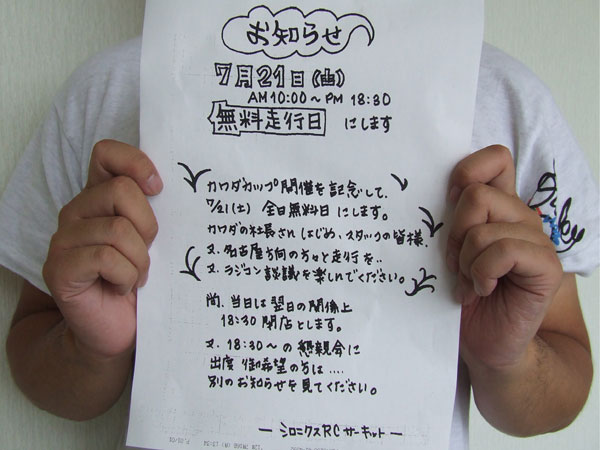 お知らせ
7月21日(土)
AM10:00～PM 18:30
無料走行日 にします
カワダカップ開催を記念して、
7/21(土) 全日無料日にします。
カワダの社長さんはじめ、スタッフの皆様、
又、名古屋方向の方々と走行を、、
又、ラジコン談議を楽しんでください。
尚、当日は翌日の関係上
18:30 閉店とします。
又、18:30～の懇親会に
出席 御希望の方は‥‥
別のお知らせを見てください。
ー シロニクスRCサーキット ー